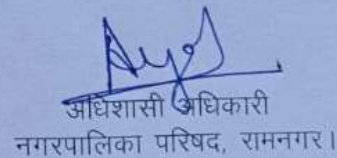 अधिशासी अधिकारी
नगरपालिका परिषद, रामनगर।